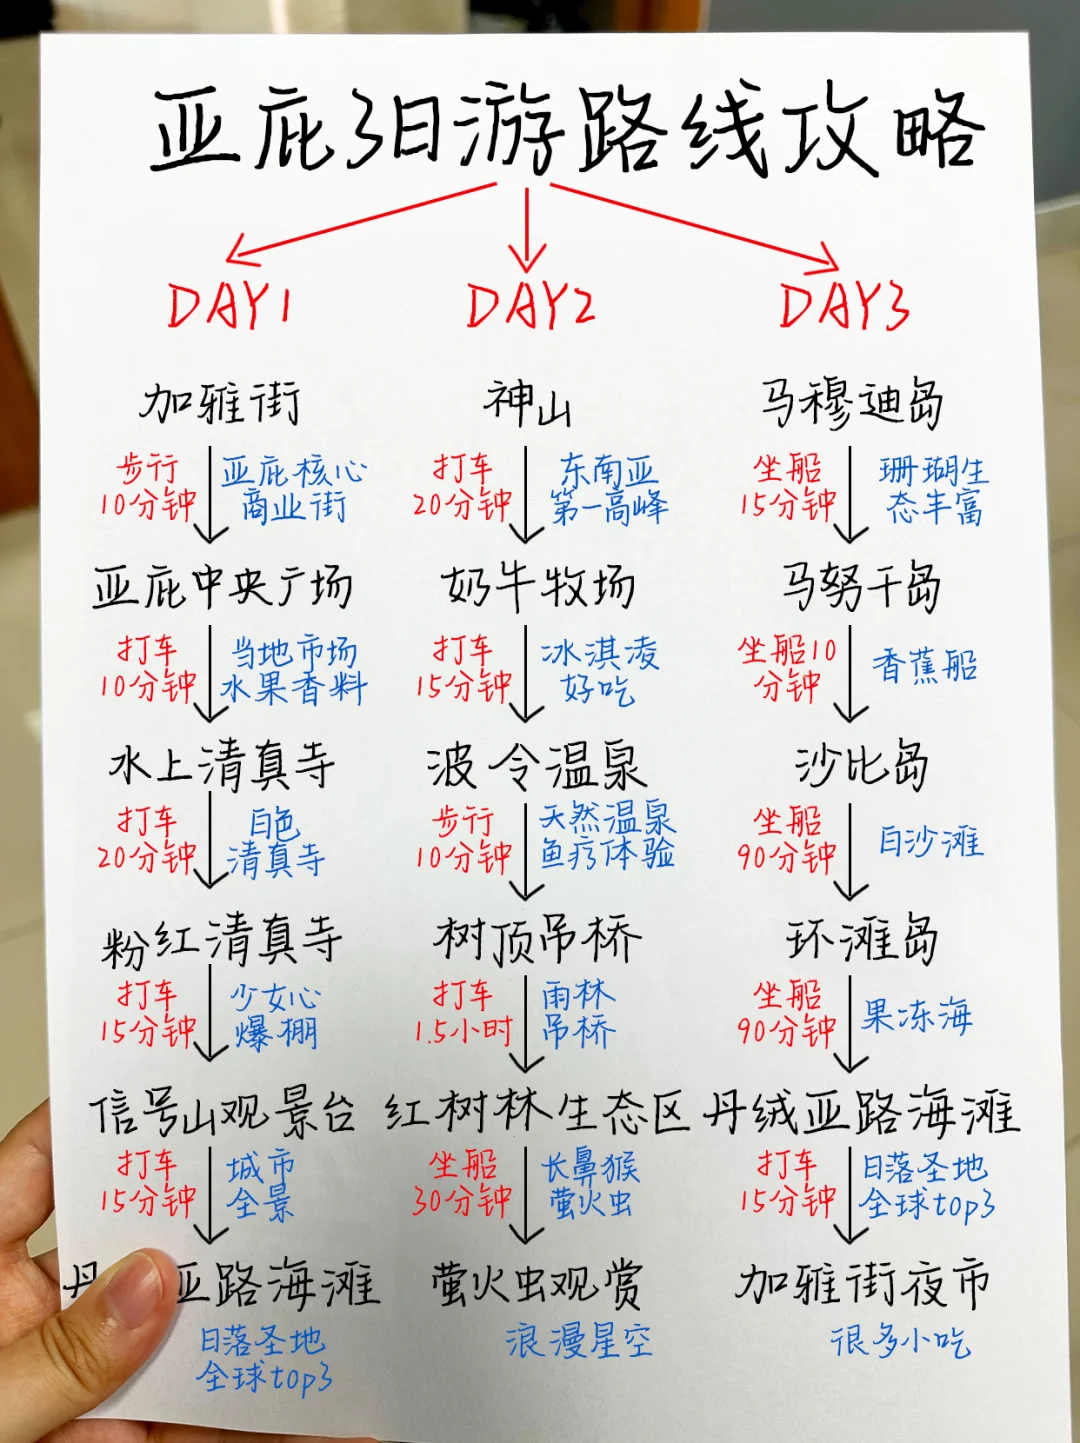 亚庇3日游路线攻略
DAY1
加雅街
步行
10分钟
亚庇核心
商业街
亚庇中央广场
打车
10分钟
当地市场
水果香料
水上清真寺
打车
20分钟
白色
清真寺
粉红清真寺
打车
15分钟
少女心
爆棚
信号山观景台
打车
15分钟
城市
全景
丹 亚路海滩
日落圣地
全球top3
DAY2
神山
打车
20分钟
东南亚
第一高峰
奶牛牧场
打车
15分钟
冰淇凌
好吃
波令温泉
步行
10分钟
天然温泉
鱼疗体验
树顶吊桥
打车
1.5小时
雨林
吊桥
红树林生态区
坐船
30分钟
长鼻猴
萤火虫
萤火虫观赏
浪漫星空
DAY3
马穆迪岛
坐船
15分钟
珊瑚生
态丰富
马努干岛
坐船10
分钟
香蕉船
沙比岛
坐船
90分钟
白沙滩
环滩岛
坐船
90分钟
果冻海
丹绒亚路海滩
打车
15分钟
日落圣地
全球top3
加雅街夜市
很多小吃